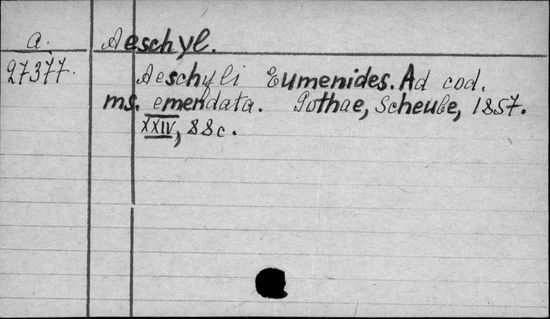 a.
27377.
Aeschyl.
Aeschyli Eumenides. Ad cod.
ms. emendata. Gothae, Scheube, 1857.
XXIV, 88c.